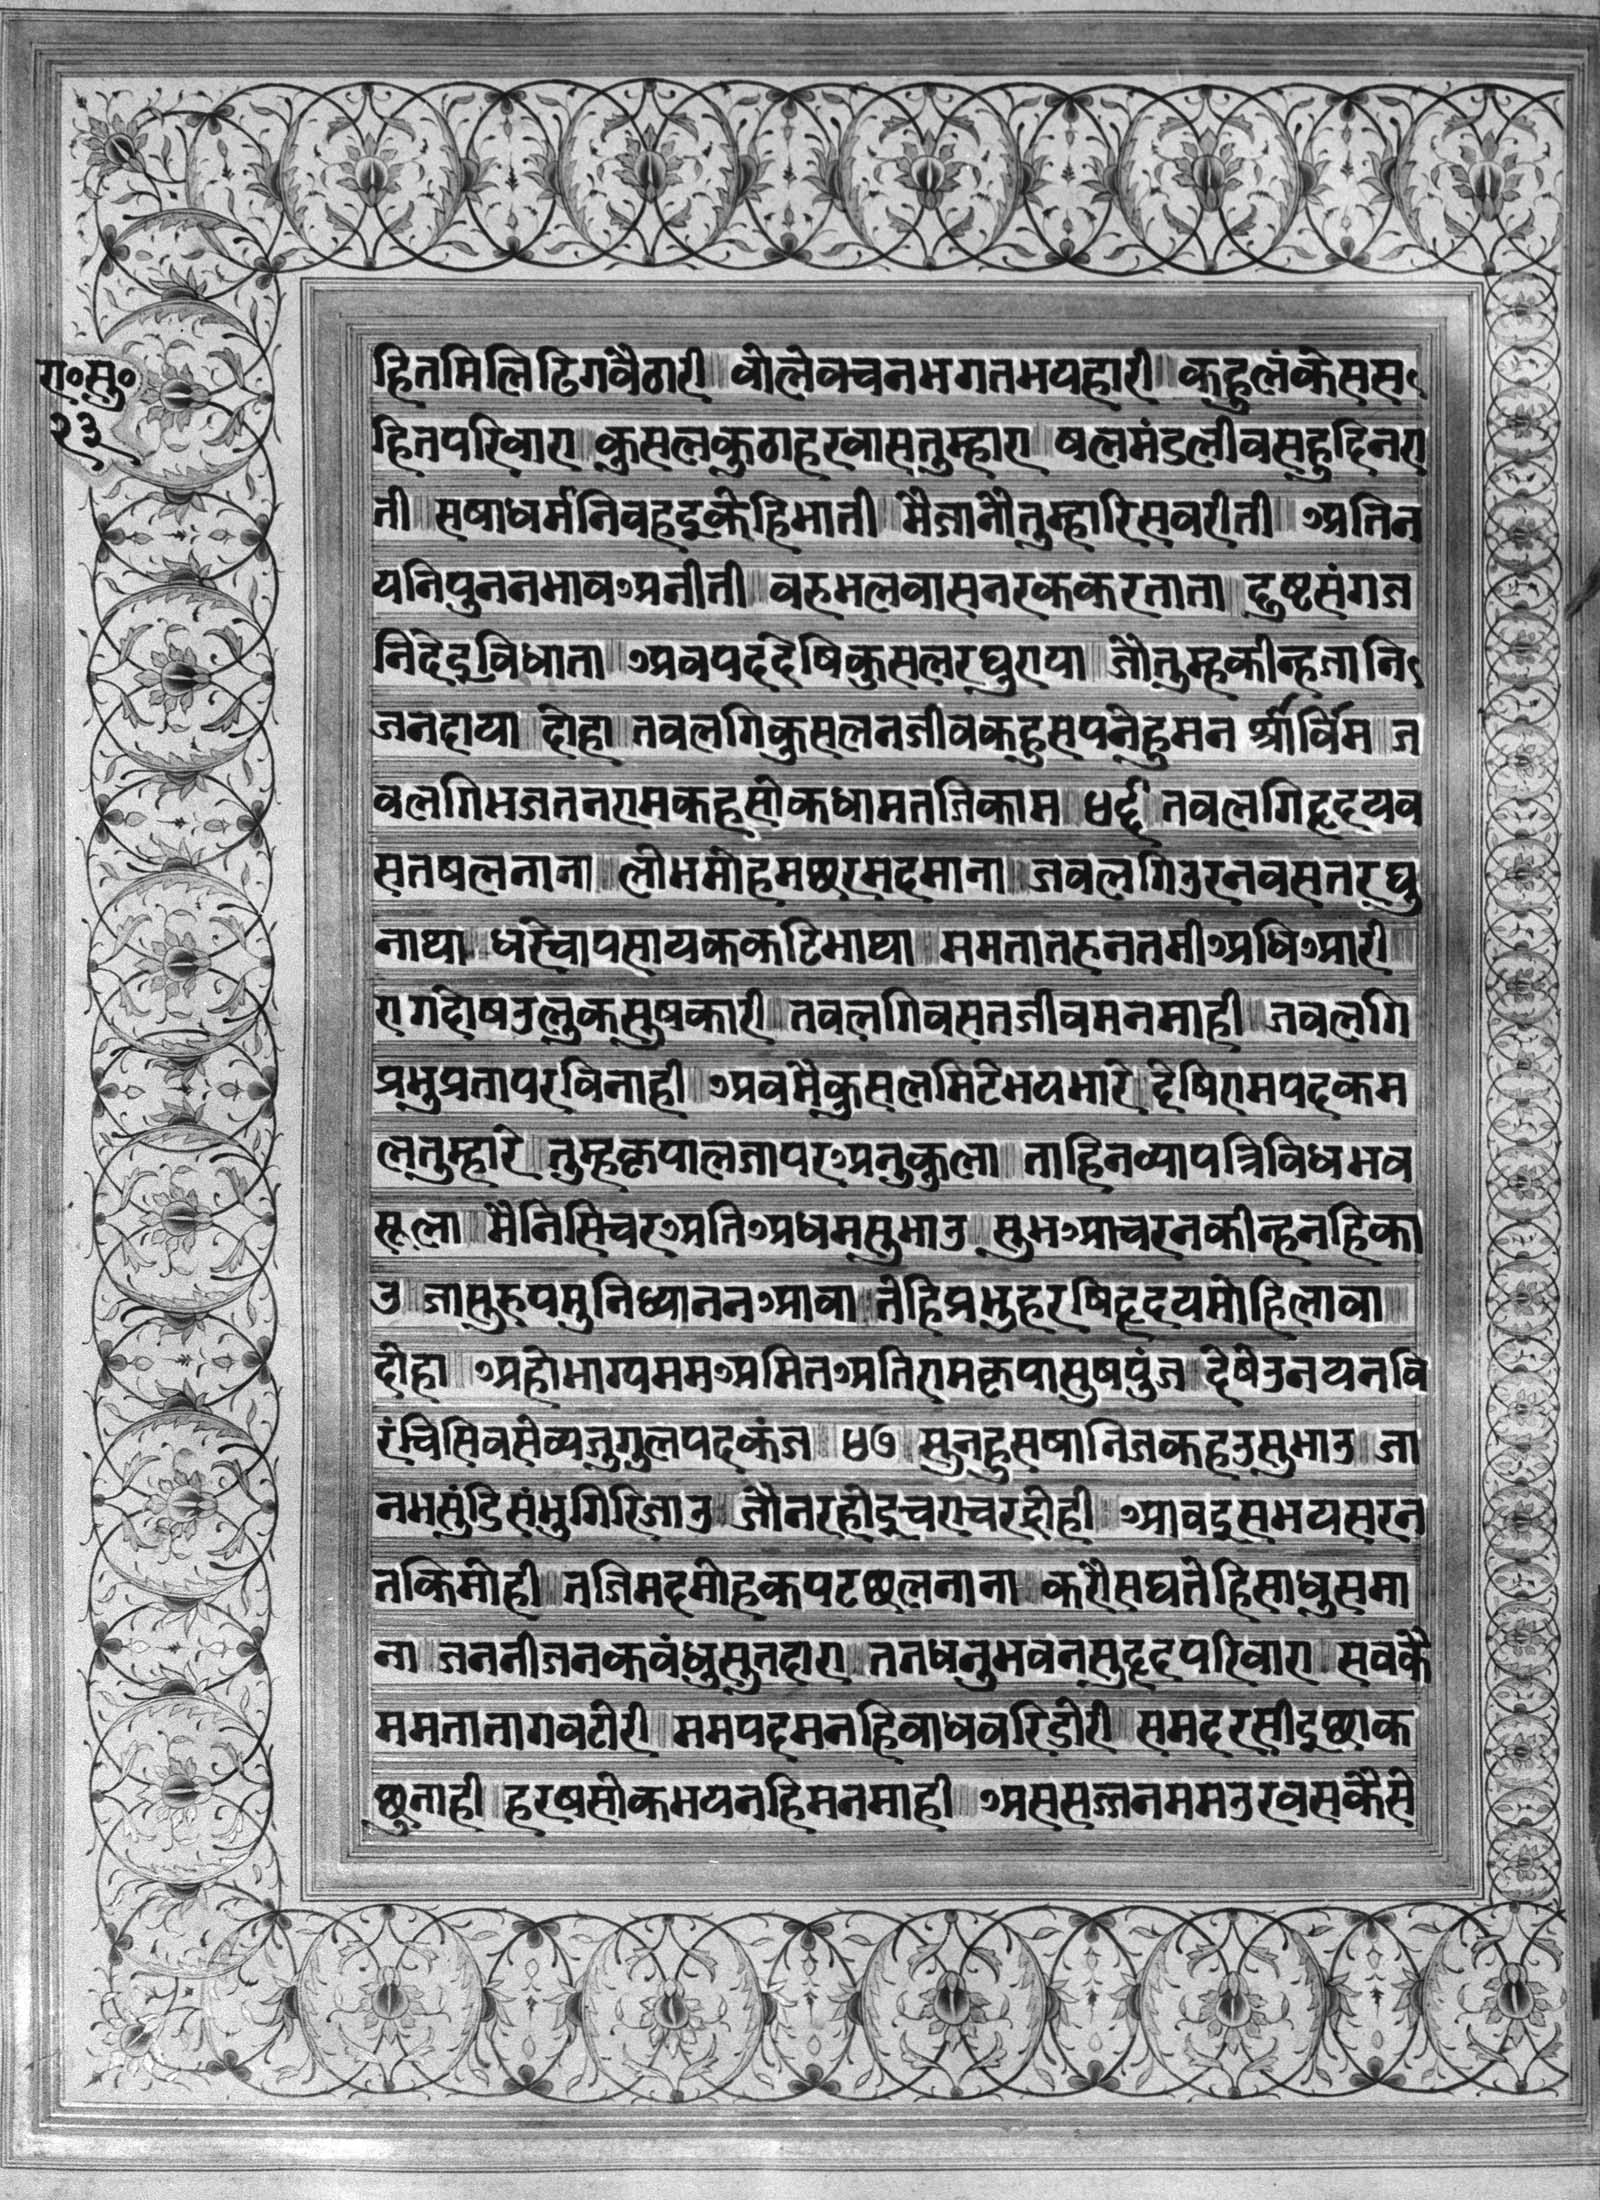 रा॰सु॰
२३
हितमिलिढिगवैठारी वोलेवचनभगतभयहारी कहुलंकेसस
हितपरिवारा कुसलकुठाहरवासतुम्हारा षलमंडलीवसहुदिनरा
ती सषाधर्मनिवहइकेहिभाती मैजानौतुम्हारिसवरीती अतिन
यनिपुननभावअनीती वरुभलवासनरककरताता दुष्टसंगज
निदेइविधाता अवपददेषिकुसलरघुराया जौतुम्हकीन्हजानि
जनदाया दोहा तवलगिकुसलनजीवकहुसपनेहुमन श्रीर्विम ज
वलगिभजतनरामकहसोकधामतजिकाम ४६ तवलगिहृदयव
सतषलनाना लोभमोहमछरमदमाना जवलगिउरनवसतरघु
नाथा धरेचापसायककटिभाथा ममतातरुनतमीअधिआरी
रागदोषउलुकसुषकारी तवलगिवसतजीवमनमाही जवलगि
प्रभुप्रतापरविनाही अवमैकुसलमिटेभयभारे देषिरामपदकम
लतुम्हारे तुम्हकृपालजापरअनुकुला ताहिनव्यापत्रिविधभव
सूला मैनिसिचरअतिअधमसुभाउ सुभआचरनकीन्हनहिका
उ जासुरुपमुनिध्याननआवा तेहिप्रभुहरषिहृदयमोहिलावा
दोहा अहोभाग्यममअमितअतिरामकृपासुषपुंज देषेउनयनवि
रंचिसिवसेव्यजुगुलपदकंज ४७ सुनहुसषानिजकहउसुभाउ जा
नभसुंडिसंभुगिरिजाउ जौनरहोइचराचरद्रोही आवइसमयसरन
तकिमोही तजिमदमोहकपटछलनाना करौसद्यतेहिसाधुसमा
ना जननीजनकवंधुसुतदारा तनधनुभवनसुहृदपरिवारा सवकै
ममतातागवटोरी ममपदमनहिवाधवरिडोरी समदरसीइछाक
छुनाही हरषसोकभयनहिमनमाही अससज्जनममउरवसकैसे